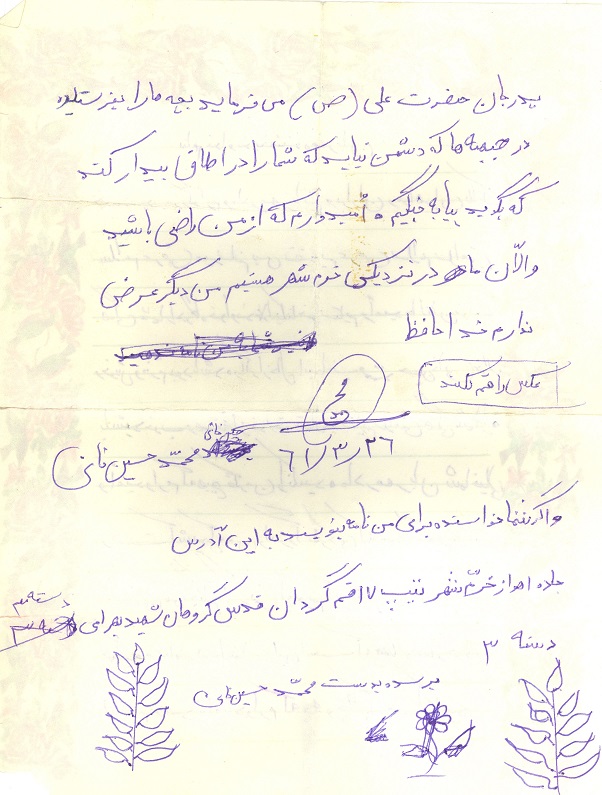 پدرجان حضرت علی (ص) می فرماید بچه ها را بفرستید
در جبهه ها که دشمن نیاید که شما را در اطاق بیدار کند
که بگوید بیا به جنگیم. اُمیدوارم که از من راضی باشید
والآن ما در نزدیکی خرم شهر هستیم من دیگر عرضی
ندارم خداحافظ
عکس را قم بکنید
محمد
۶۱/۳/۲۶
محمّد حسین خانی
واگر شما خواستده برای من نامه بنویسید به این آدرس
جاده اهواز خرّمشهر تیپ ۱۷ قم گردان قدس گروهان شهید بهرامی دسته ۳
دسته ۳
برسد بدست محمّد حسین خانی